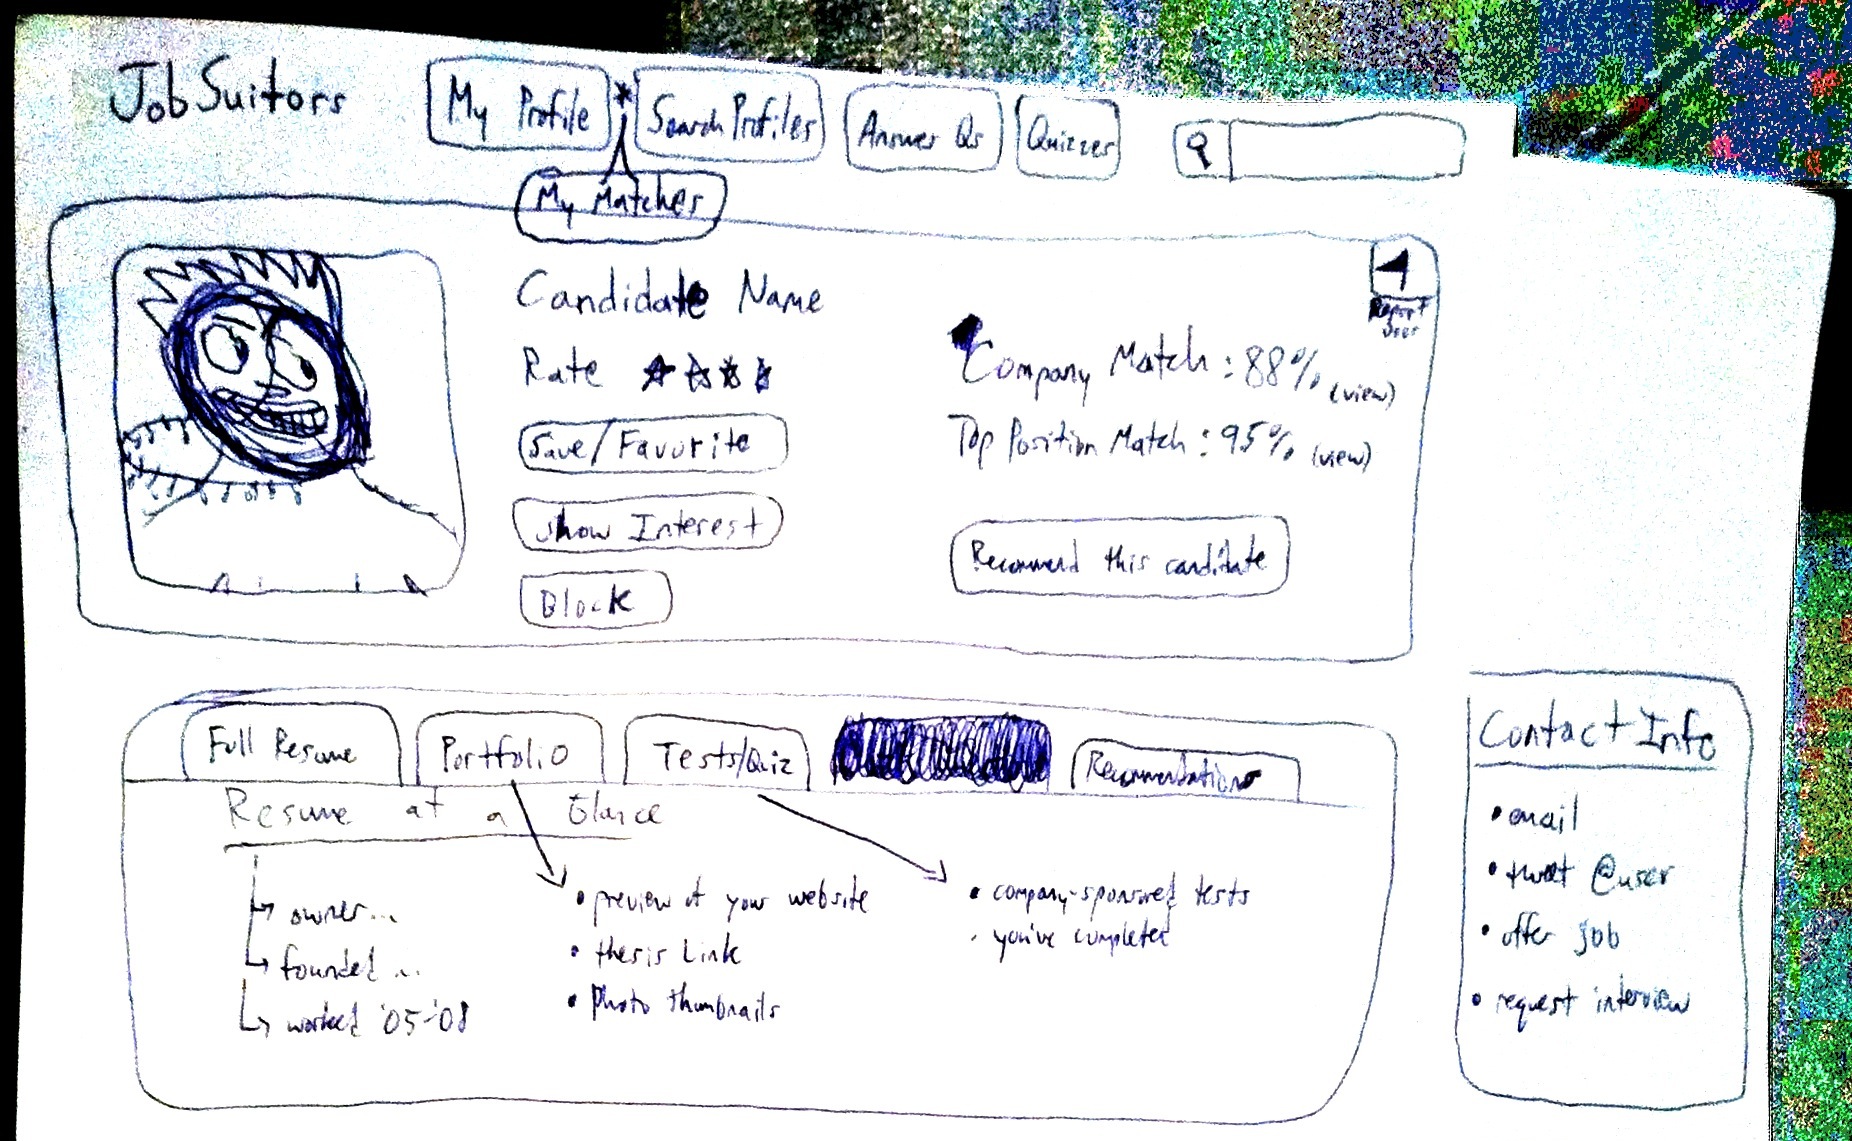 JobSuitors
My Profile
*
Search Profiles
Answer Qs
Quizzes
My Matches
Candidate Name
Rate
Save/Favorite
Show Interest
Block
Report
User
Company Match : 88% (view)
Top Position Match : 95% (view)
Recommend this candidate
Full Resume
Portfolio
Tests/Quiz
Recommendations
Resume at a Glance
owner...
founded ...
worked '05-'08
• preview of your website
• thesis Link
• photo thumbnails
• company-sponsored tests
you've completed
Contact Info
• email
• tweet @user
• offer job
• request interview